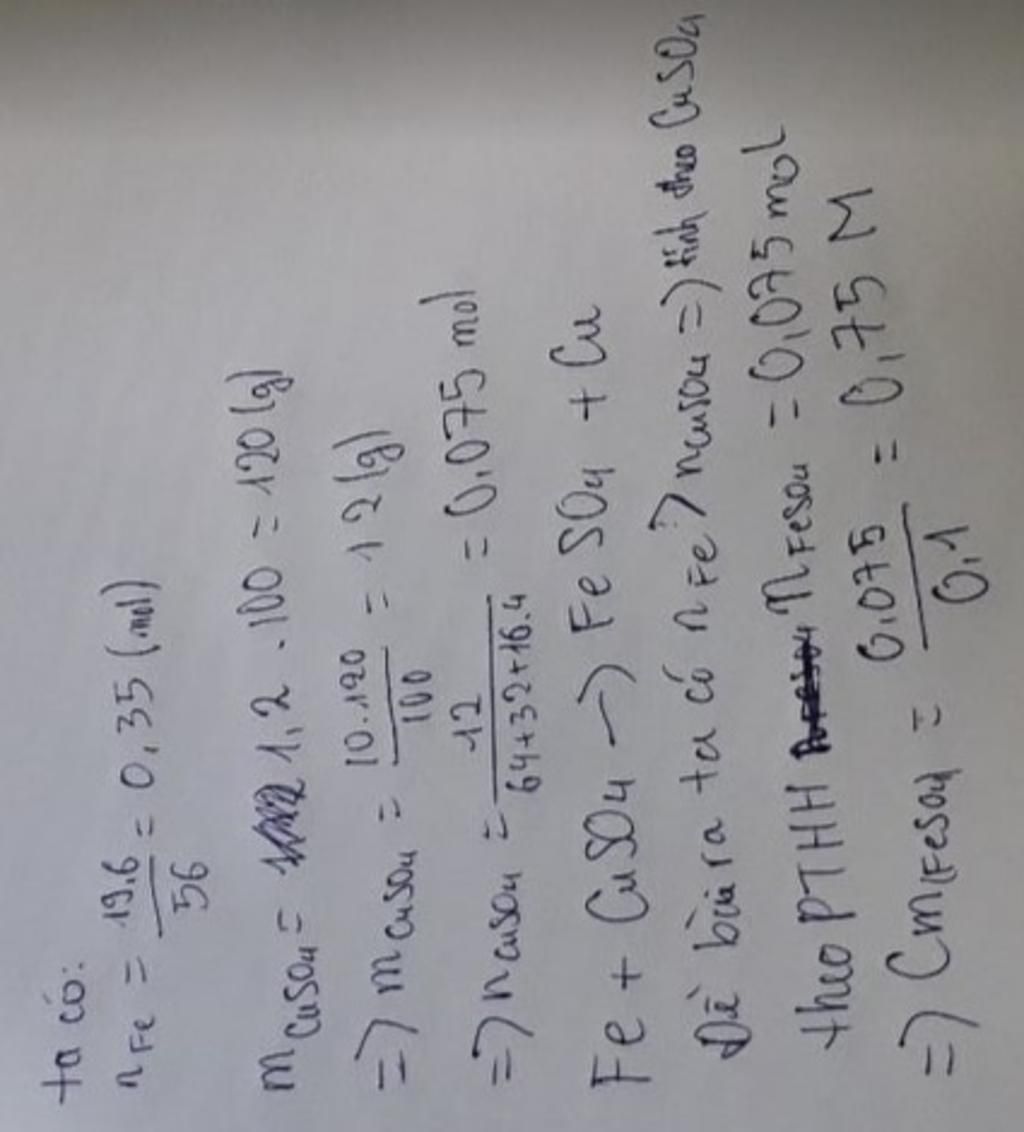 ta có:
n Fe = 19,6 / 56 = 0,35 (mol)
m CuSO4 = 1,2 . 100 = 120 (g)
=> m CuSO4 = 10.120 / 100 = 12 (g)
=> n CuSO4 = 12 / 64+32+16.4 = 0,075 mol
Fe + CuSO4 -> FeSO4 + Cu
Đề bài ra ta có n Fe > n CuSO4 => tính theo CuSO4
theo PTHH n FeSO4 = 0,075 mol
=> Cm(FeSO4) = 0,075 / 0,1 = 0,75 M